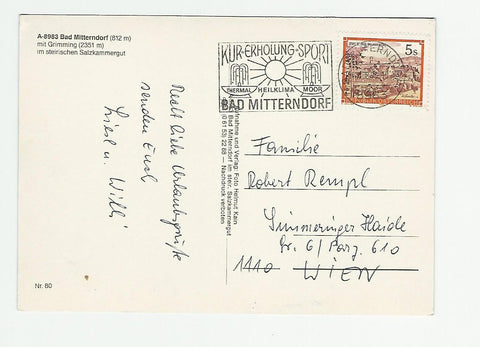 A-8983 Bad Mitterndorf (812 m)
mit Grimming (2351 m)
im steirischen Salzkammergut
KUR·ERHOLUNG·SPORT
THERMAL HEILKLIMA MOOR
BAD MITTERNDORF
5s
Recht liebe Urlaubsgrüße
senden Euch
Liesl u. Willi
Aufnahme und Verlag: Foto Helmut Kain
Bad Mitterndorf im steir. Salzkammergut
(0 61 53) 22 88 — Nachdruck verboten
Familie
Robert Rempl
Simmeringer Haide
Gr. 6/Parz. 610
1110 WIEN
Nr. 80